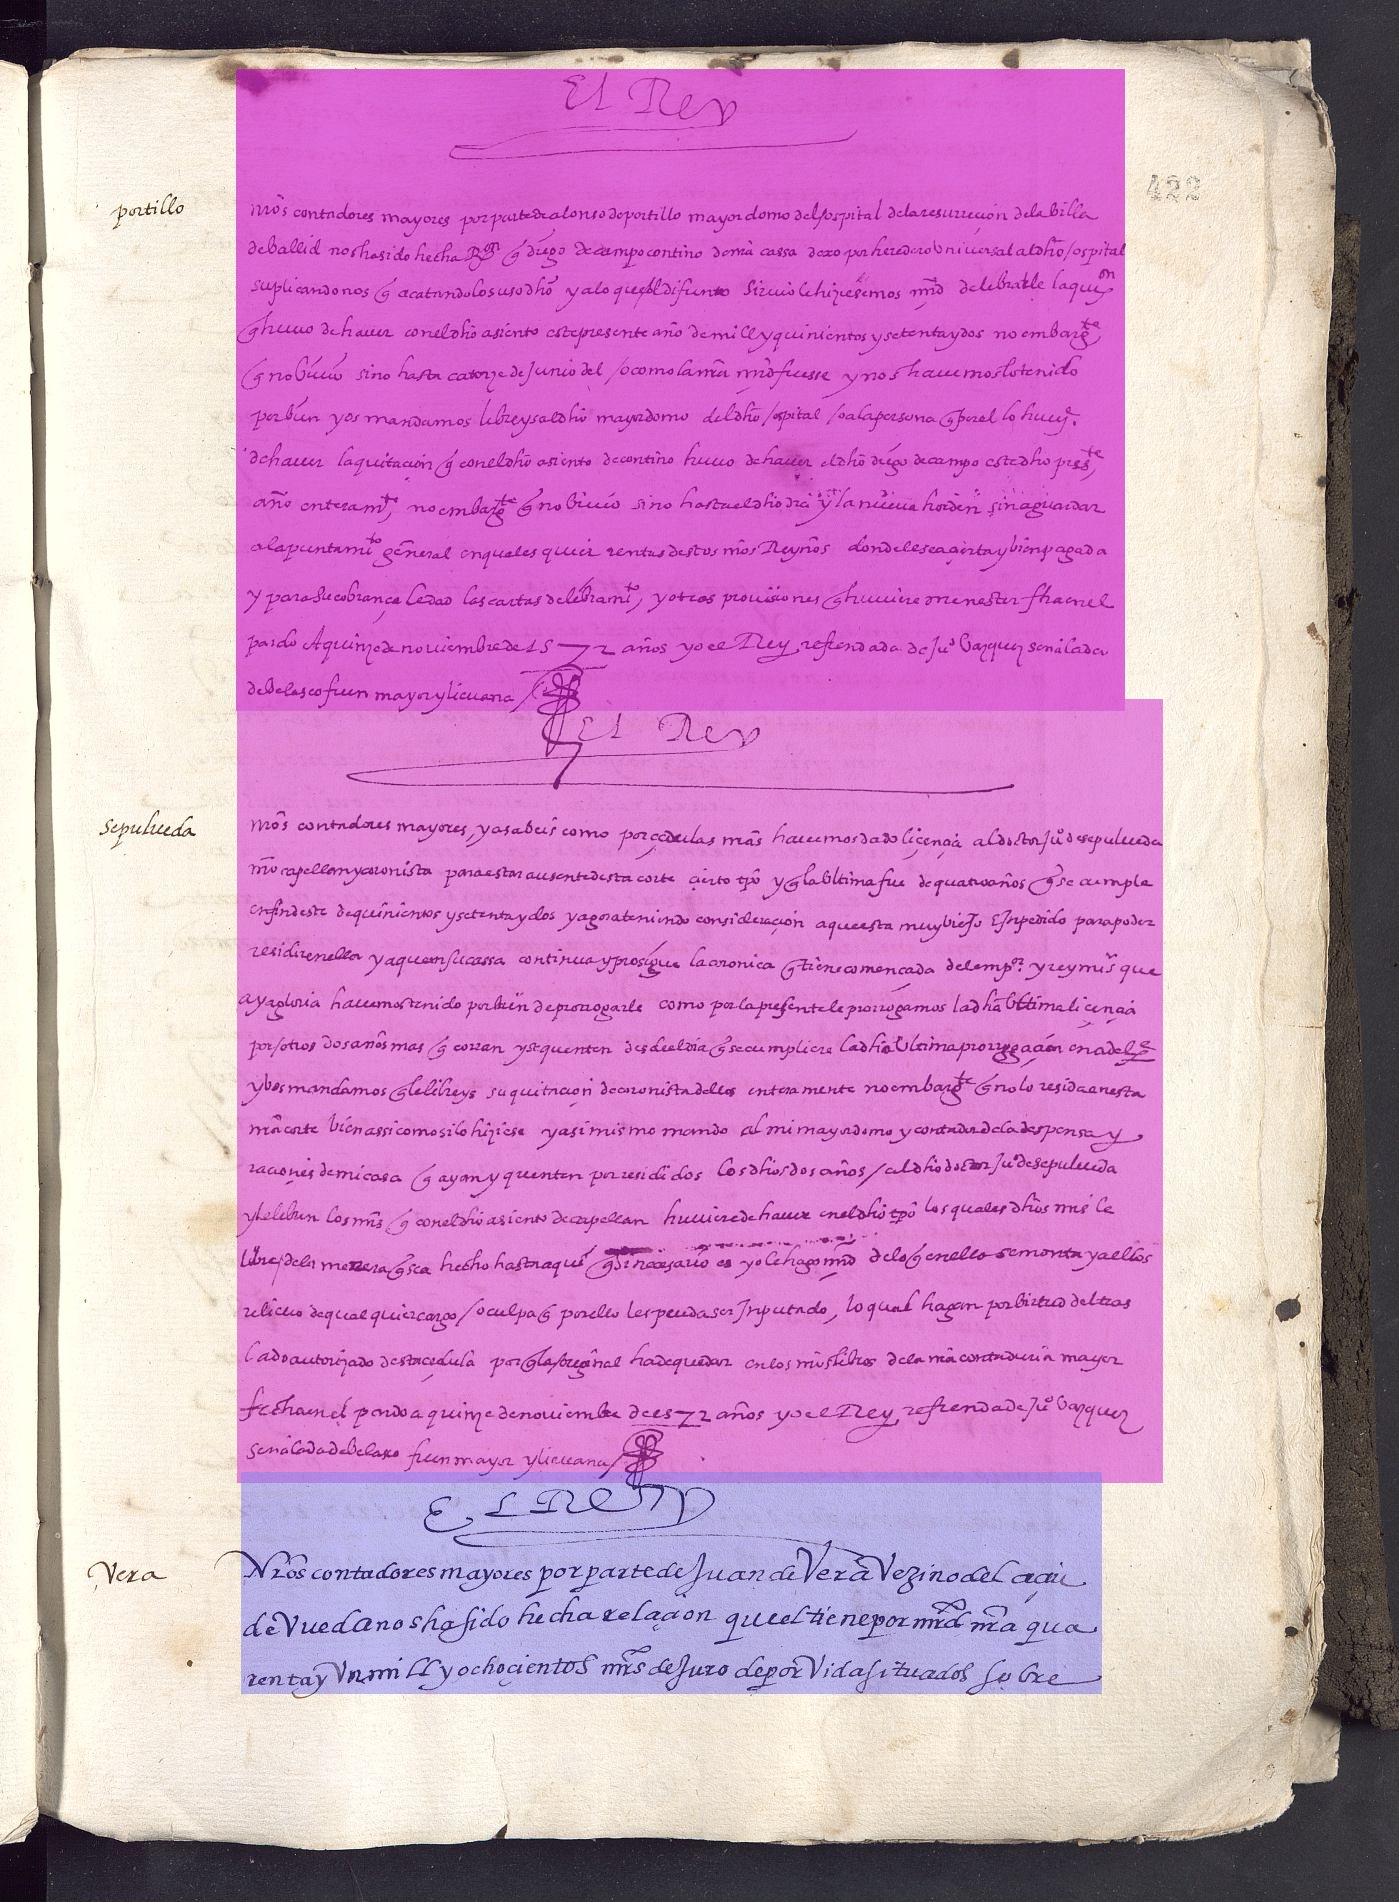 El Rey
422
portillo
nr̃os contadores mayores por parte de alonso de portillo mayordomo del ospital dela resureçion dela billa
de ballid nos ha sido hecha Ron q̃ diego de campo contino de nr̃a cassa dexo por heredero Universal al dho / ospital
suplicandonos q̃ acatando lo suso dho y alo que el difunto sirvio le hiziesemos mrd de lebrarle la quion
q̃ huuo de hauer con el dho asiento este presente año de mill y quinientos y setenta y dos no embargte
q̃ no biuio sino hasta catorze de Junio del / o como la nr̃a mrd fuesse y nos hauemos lo tenido
por bien y os mandamos libreys al dho mayordomo del dho / ospital / o ala persona q̃ por el lo huuiere
de hauer la quitaçion q̃ con el dho asiento de contino huuo de hauer el dho diego de campo este dho preste
año enteramte, no embargte q̃ no biuio sino hasta el dho dia y la nueva horden sin aguardar
al apuntamto general en quales quier rentas destos nr̃os Reynos donde le sea çierta y bien pagada
y para su cobrança le dad las cartas de lebramto, y otras prouisiones q̃ huuiere menester fha en el
pardo A quinze de noviembre de 1572 años yo el Rey refrendada de Juo Vazquez señalada
de belasco fuen mayor y lieuana /
El Rey
sepulueda
nr̃os contadores mayores, ya sabeis como por çedulas nr̃as hauemos dado liçençia al doctor Juo de sepulueda
nr̃o capellan y coronista para estar ausente desta corte çierto tpo y q̃ la Ultima fue de quatro años q̃ se cumple
en fin deste de quinientos y setenta y dos y agora teniendo consideraçion a que esta muy biejo E Inpedido para poder
residir en ella y a que en su cassa continua y prosigue la coronica q̃ tiene començada del empor y rey mi sr que
aya gloria hauemos tenido por bien de prorrogarle como por la presente le prorrogamos la dha Ultima liçençia
por / otros dos años mas q̃ corran y se quenten desde el dia q̃ se cumpliere la dha Ultima prorrogaçion en adelte
y vos mandamos q̃ le libreys su quitaçion de coronista dellos enteramente no embargte q̃ no lo resida en esta
nr̃a corte bien assi como si lo hiziese y asi mismo mando al mi mayordomo y contador dela despensa y
raçiones de mi casa q̃ ayan y quenten por residos los dhos dos años / al dho doctor Juo de sepulueda
y le lebren los mrs q̃ con el dho asiento de capellan huuiere de hauer en el dho tpo los quales dhos mrs le
libre / dela manera q̃ sea hecho hasta qui q̃ si neçesario es yo le hago mrd delo q̃ en ello se monta y a ellos
relieuo de qual quier cargo / o culpa q̃ por ello les pueda ser Inputado, lo qual hagan por birtud del tras
lado autorizado desta çedula por q̃ la / original ha de quedar en los mis libros dela mi contaduria mayor
fecha en el pardo a quinze de noviembre de 1572 años yo el Rey refrendada de Juo Vazquez
señalada de belasco fuen mayor y lieuana /
EL Rey
Vera
Nr̃os contadores mayores por parte de Juan de Vera Vezino del açiu
de Vueda nos ha sido hecha relaçion que el tiene por mrd nr̃a qua
renta y Un mill y ochoçientos mrs de Juro de por Vida situados sobre